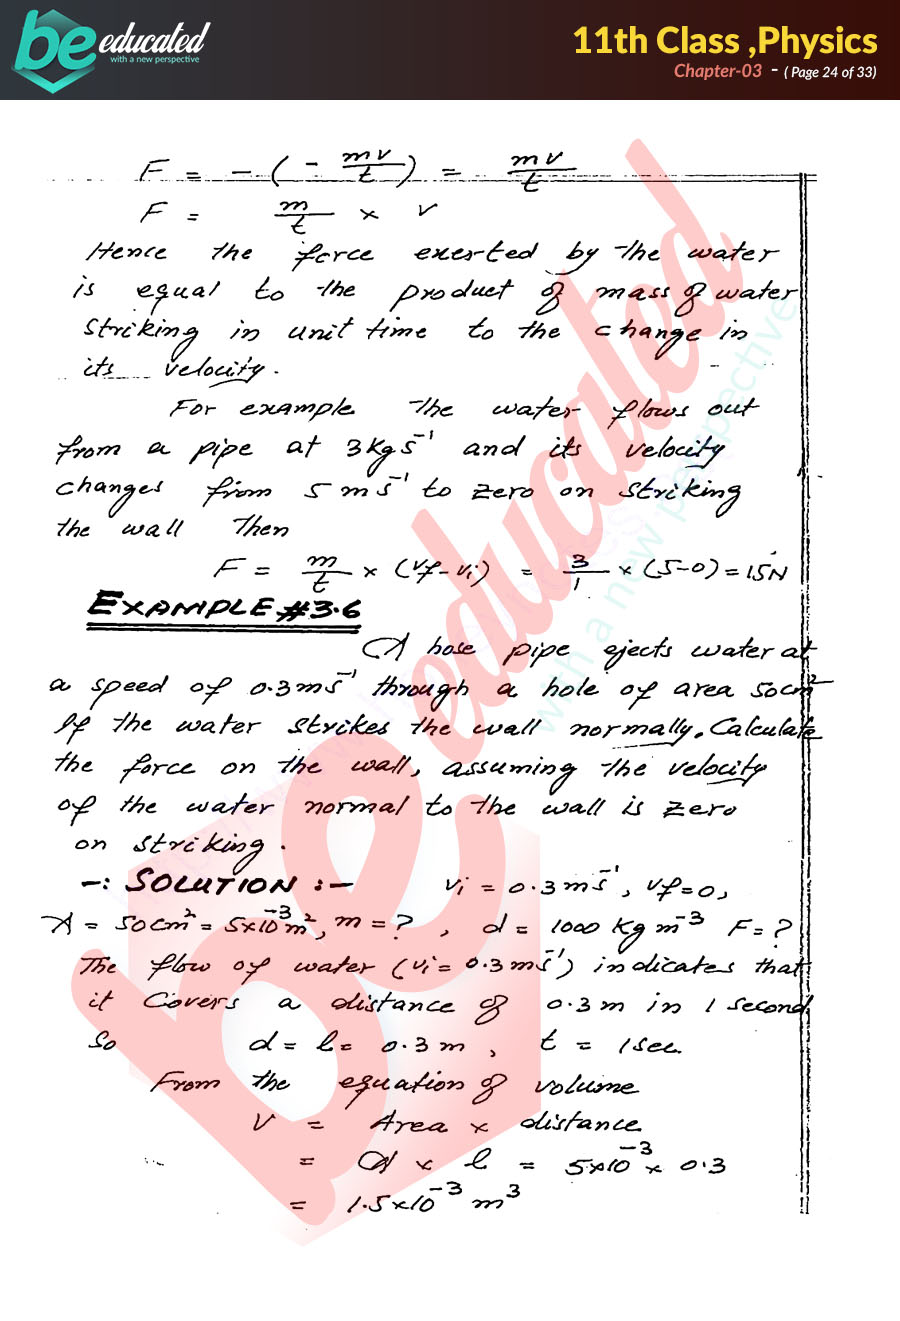 be educated
with a new perspective
11th Class ,Physics
Chapter-03 - ( Page 24 of 33)
F = - ( - mv/t ) = mv/t
F = m/t × v
Hence the force exerted by the water
is equal to the product of mass of water
striking in unit time to the change in
its velocity.
For example the water flows out
from a pipe at 3kgs⁻¹ and its velocity
changes from 5 ms⁻¹ to zero on striking
the wall Then
F = m/t × (vf-vi) = 3/1 × (5-0) = 15N
EXAMPLE #3.6
A hose pipe ejects water at
a speed of 0.3ms⁻¹ through a hole of area 50cm²
If the water strikes the wall normally. Calculate
the force on the wall, assuming the velocity
of the water normal to the wall is zero
on striking.
-: SOLUTION :- vi = 0.3ms⁻¹, vf=0,
A = 50cm² = 5x10⁻³m², m = ? , d = 1000 Kgm⁻³ F=?
The flow of water (vi= 0.3ms⁻¹) indicates that
it Covers a distance of 0.3m in 1 second.
So d = l = 0.3m, t = 1sec.
From the equation of volume
V = Area x distance
= A x l = 5x10⁻³ x 0.3
= 1.5x10⁻³ m³
be educated
with a new perspective